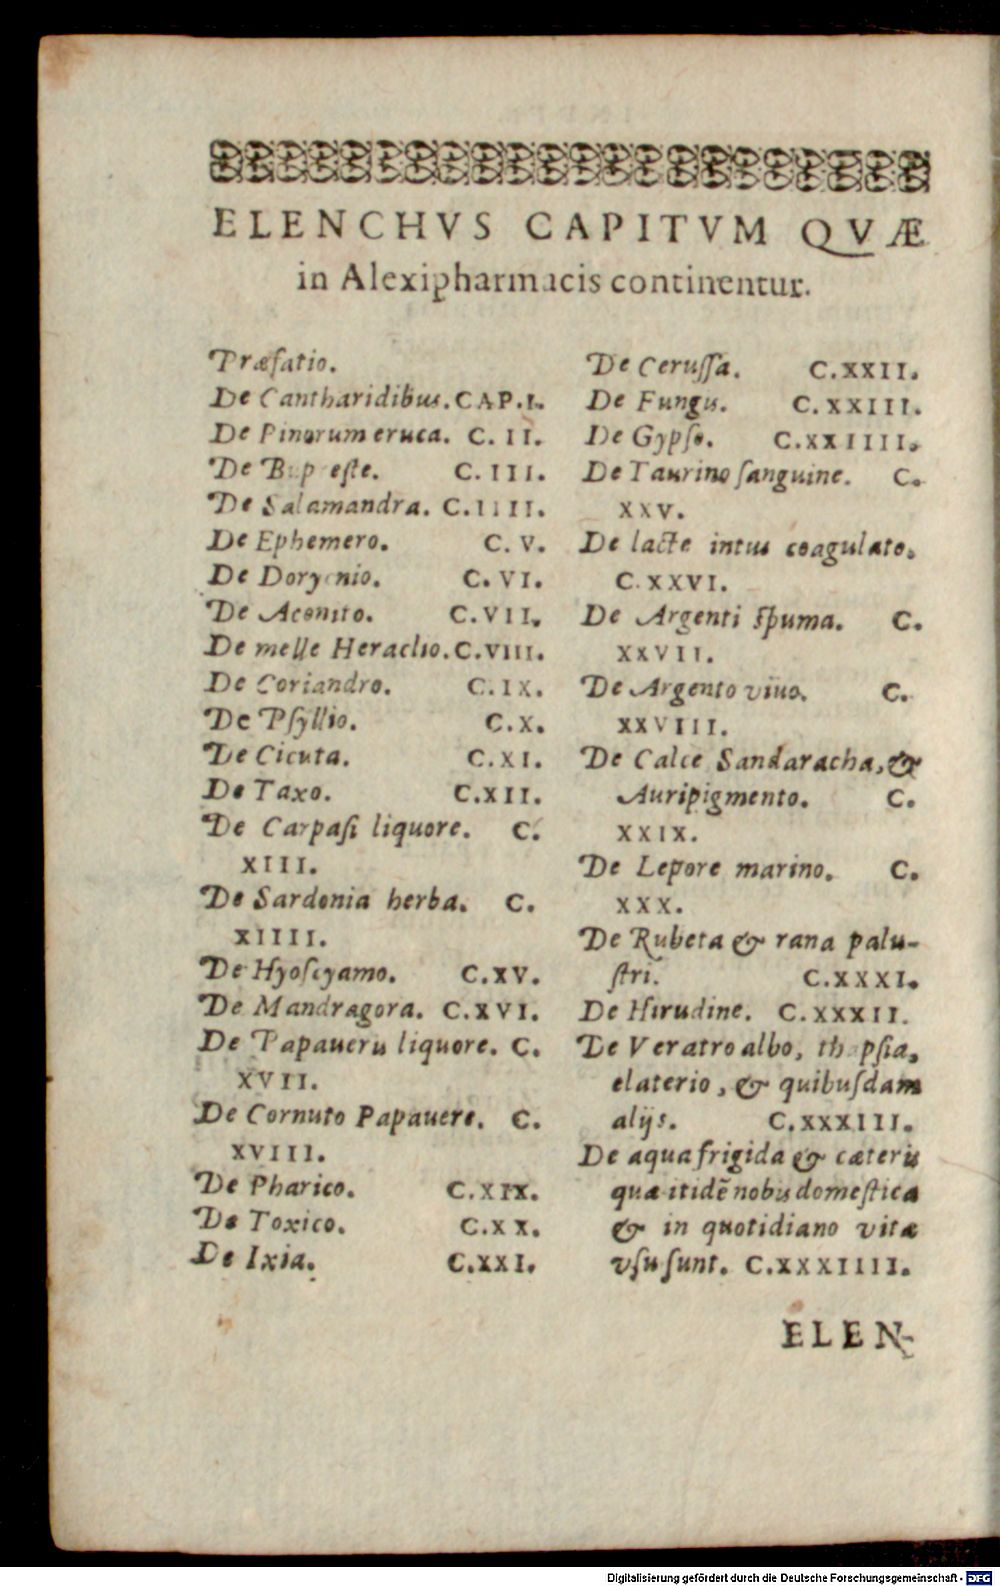 ELENCHVS CAPITVM QVÆ
in Alexipharmacis continentur.
Præfatio.
De Cantharidibus. CAP.I.
De Pinorum eruca. C. II.
De Bupreste. C. III.
De Salamandra. C. IIII.
De Ephemero. C. V.
De Dorycnio. C. VI.
De Aconito. C. VII.
De melle Heraclio. C. VIII.
De Coriandro. C. IX.
De Psyllio. C. X.
De Cicuta. C. XI.
De Taxo. C. XII.
De Carpasi liquore. C.
XIII.
De Sardonia herba. C.
XIIII.
De Hyoscyamo. C. XV.
De Mandragora. C. XVI.
De Papaueris liquore. C.
XVII.
De Cornuto Papauere. C.
XVIII.
De Pharico. C. XIX.
De Toxico. C. XX.
De Ixia. C. XXI.
De Cerussa. C. XXII.
De Fungis. C. XXIII.
De Gypso. C. XXIIII.
De Taurino sanguine. C.
XXV.
De lacte intus coagulato.
C. XXVI.
De Argenti spuma. C.
XXVII.
De Argento viuo. C.
XXVIII.
De Calce Sandaracha, &
Auripigmento. C.
XXIX.
De Lepore marino. C.
XXX.
De Rubeta & rana palu-
stri. C. XXXI.
De Hirudine. C. XXXII.
De Veratro albo, thapsia,
elaterio, & quibusdam
alijs. C. XXXIII.
De aqua frigida & cæteris
quæ itidẽ nobis domestica
& in quotidiano vitæ
vsu sunt. C. XXXIIII.
ELEN-
Digitalisierung gefördert durch die Deutsche Forschungsgemeinschaft - DFG